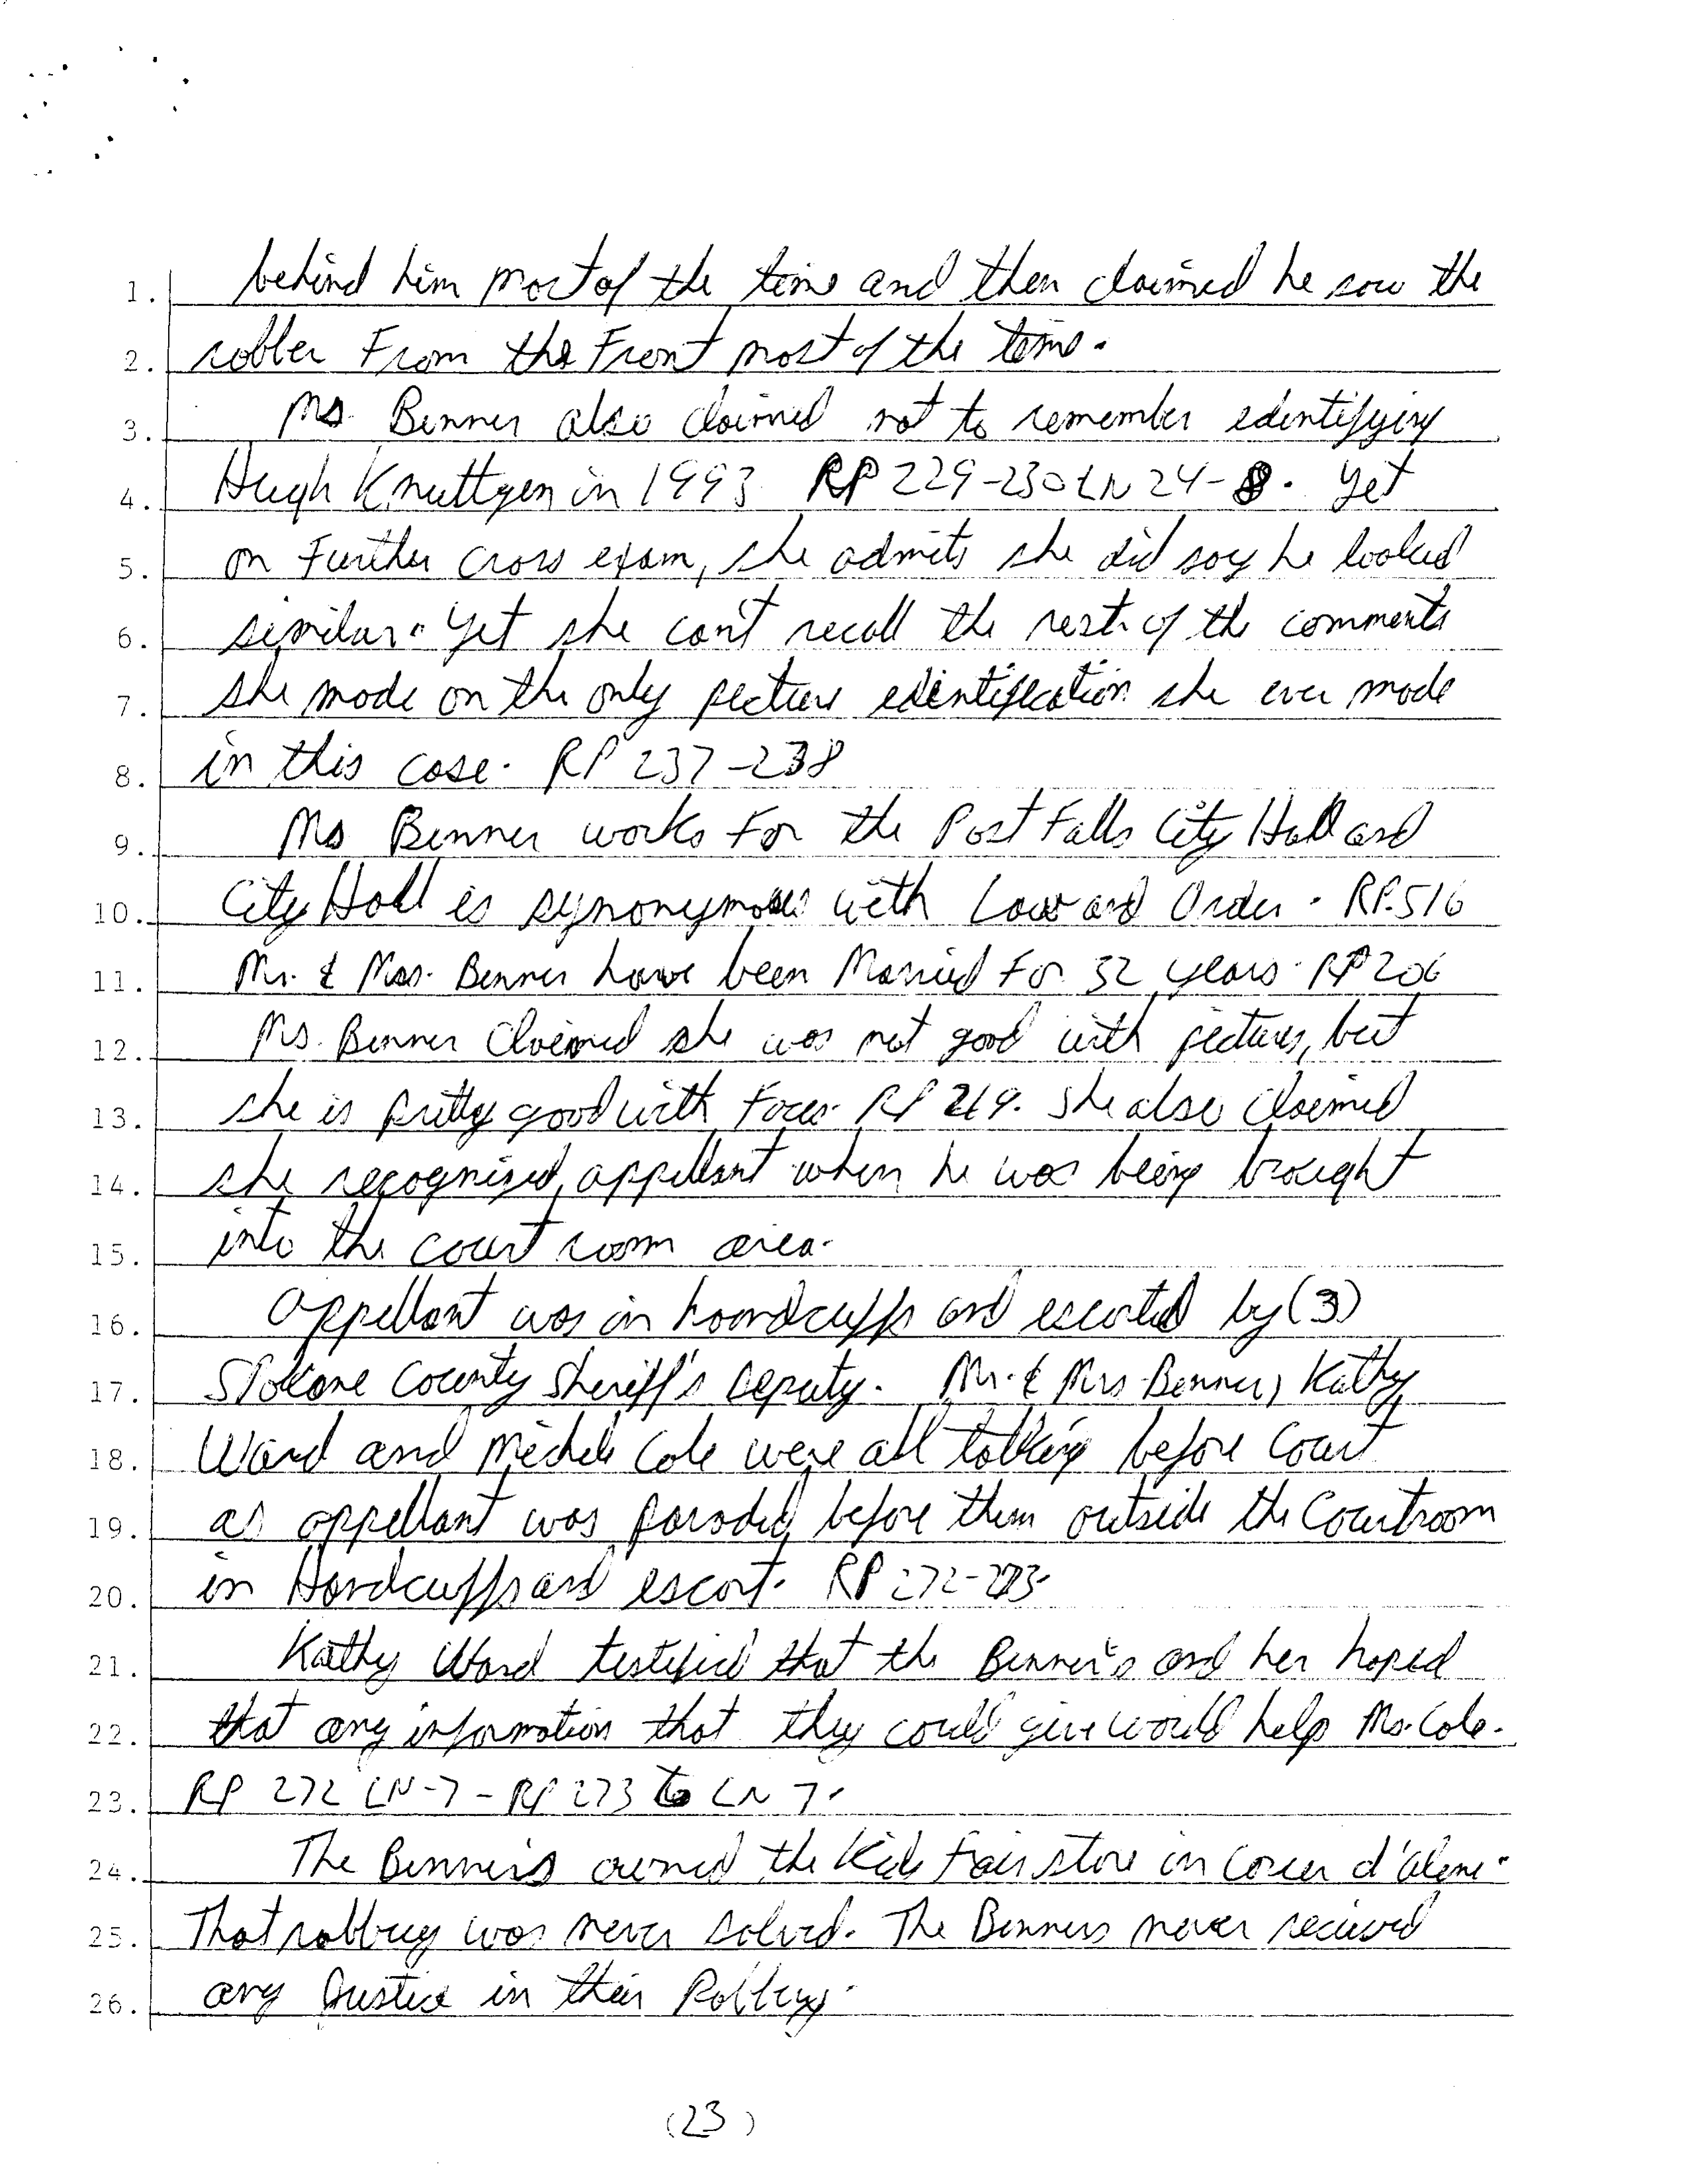 1. behind him most of the time and then claimed he saw the
2. robber From the Front most of the time.
3. Ms. Benner also claimed not to remember identifying
4. Hugh Knuttgen in 1993 RP 229-230 LN 24-8. Yet
5. on Further cross exam, she admits she did say he looked
6. similar. Yet she can't recall the rest of the comments
7. she made on the only picture identification she ever made
8. in this case. RP 237-238
9. Ms Benner works For the Post Falls City Hall and
10. City Hall is synonymous with Law and Order. RP.516
11. Mr. & Mrs. Benner have been Married For 32 years. RP 206
12. Ms. Benner Claimed she was not good with pictures, but
13. she is pretty good with Faces. RP 219. She also claimed
14. she recognized appellant when he was being brought
15. into the court room area.
16. Appellant was in handcuffs and escorted by (3)
17. Spokane County Sheriff's Deputy. Mr. & Mrs. Benner, Kathy
18. Ward and Michele Cole were all talking before Court
19. as appellant was paraded before them outside the Courtroom
20. in Handcuffs and escort. RP 272-273.
21. Kathy Ward testified that the Benner's and her hoped
22. that any information that they could give would help Ms. Cole.
23. RP 272 LN-7 - RP 273 to LN 7.
24. The Benners owned the Kids Fair store in Coeur d'alene.
25. That robbery was never solved. The Benners never recieved
26. any Justice in their Robbery.
(23)